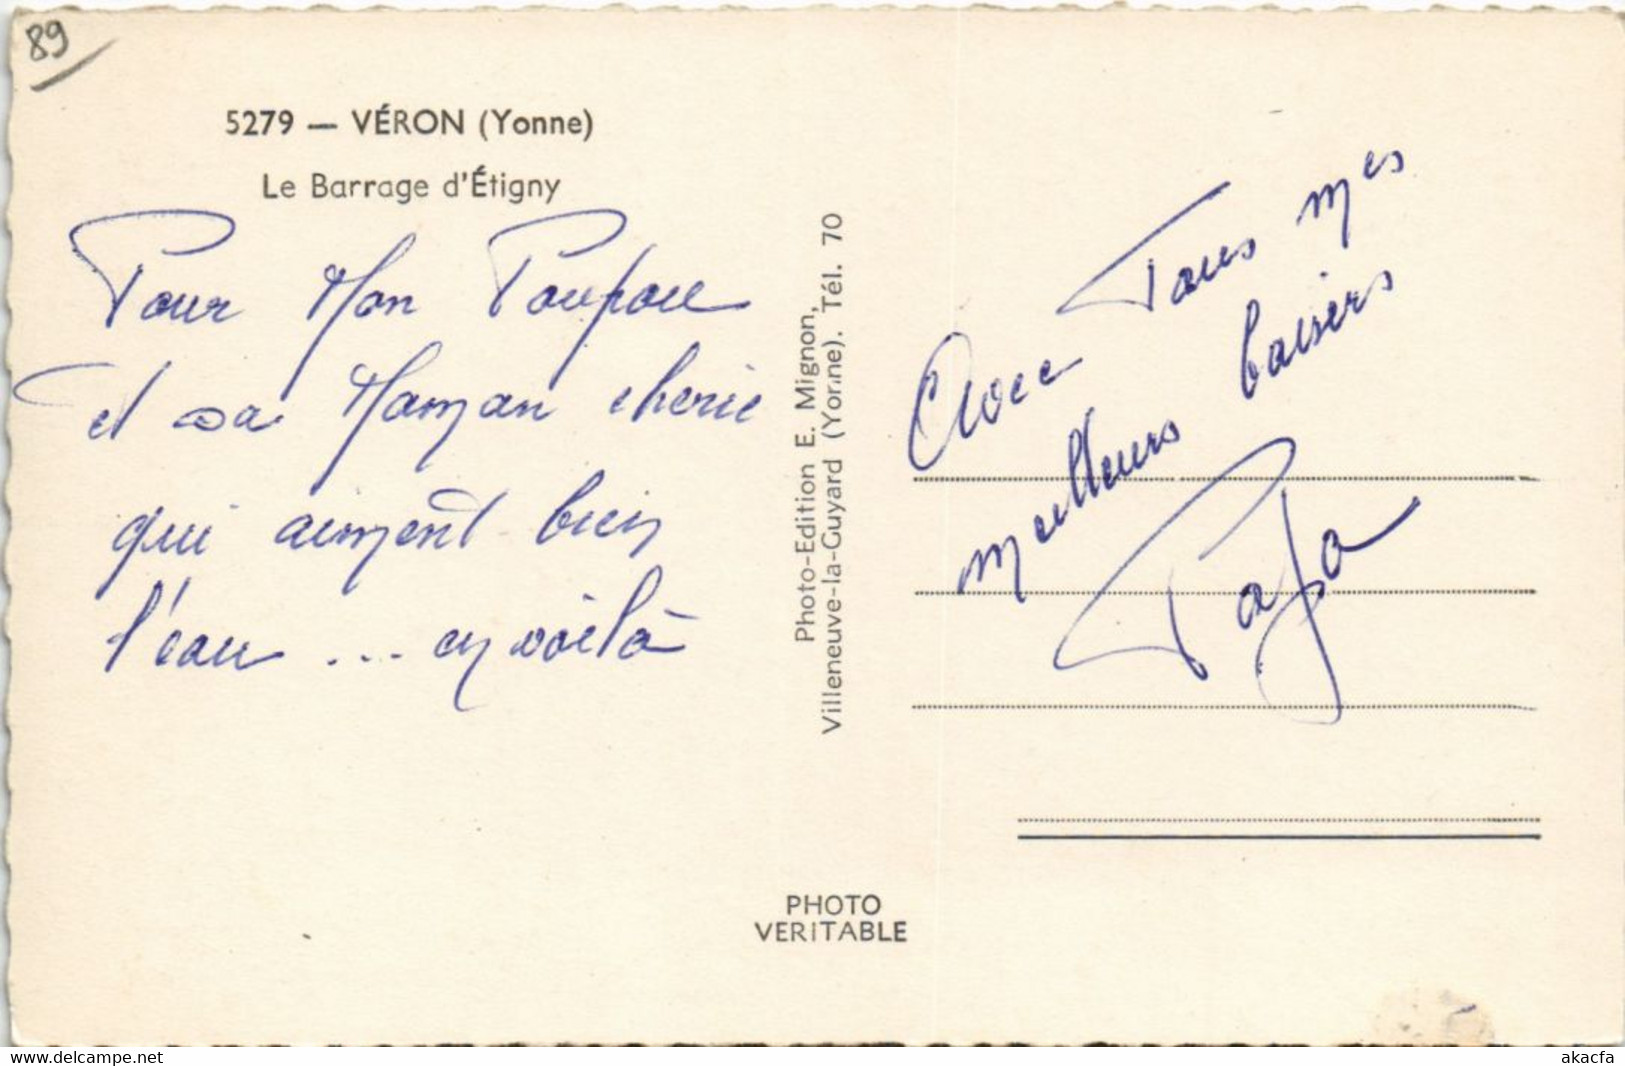 89
5279 — VÉRON (Yonne)
Le Barrage d'Étigny
Pour Mon Poupou
et sa Maman cherie
qui aiment bien
l'eau ... en voilà
Photo-Edition E. Mignon,
Villeneuve-la-Guyard (Yonne). Tél. 70
Avec Tous mes
meilleurs baisers
Papa
PHOTO
VERITABLE
www.delcampe.net
akacfa